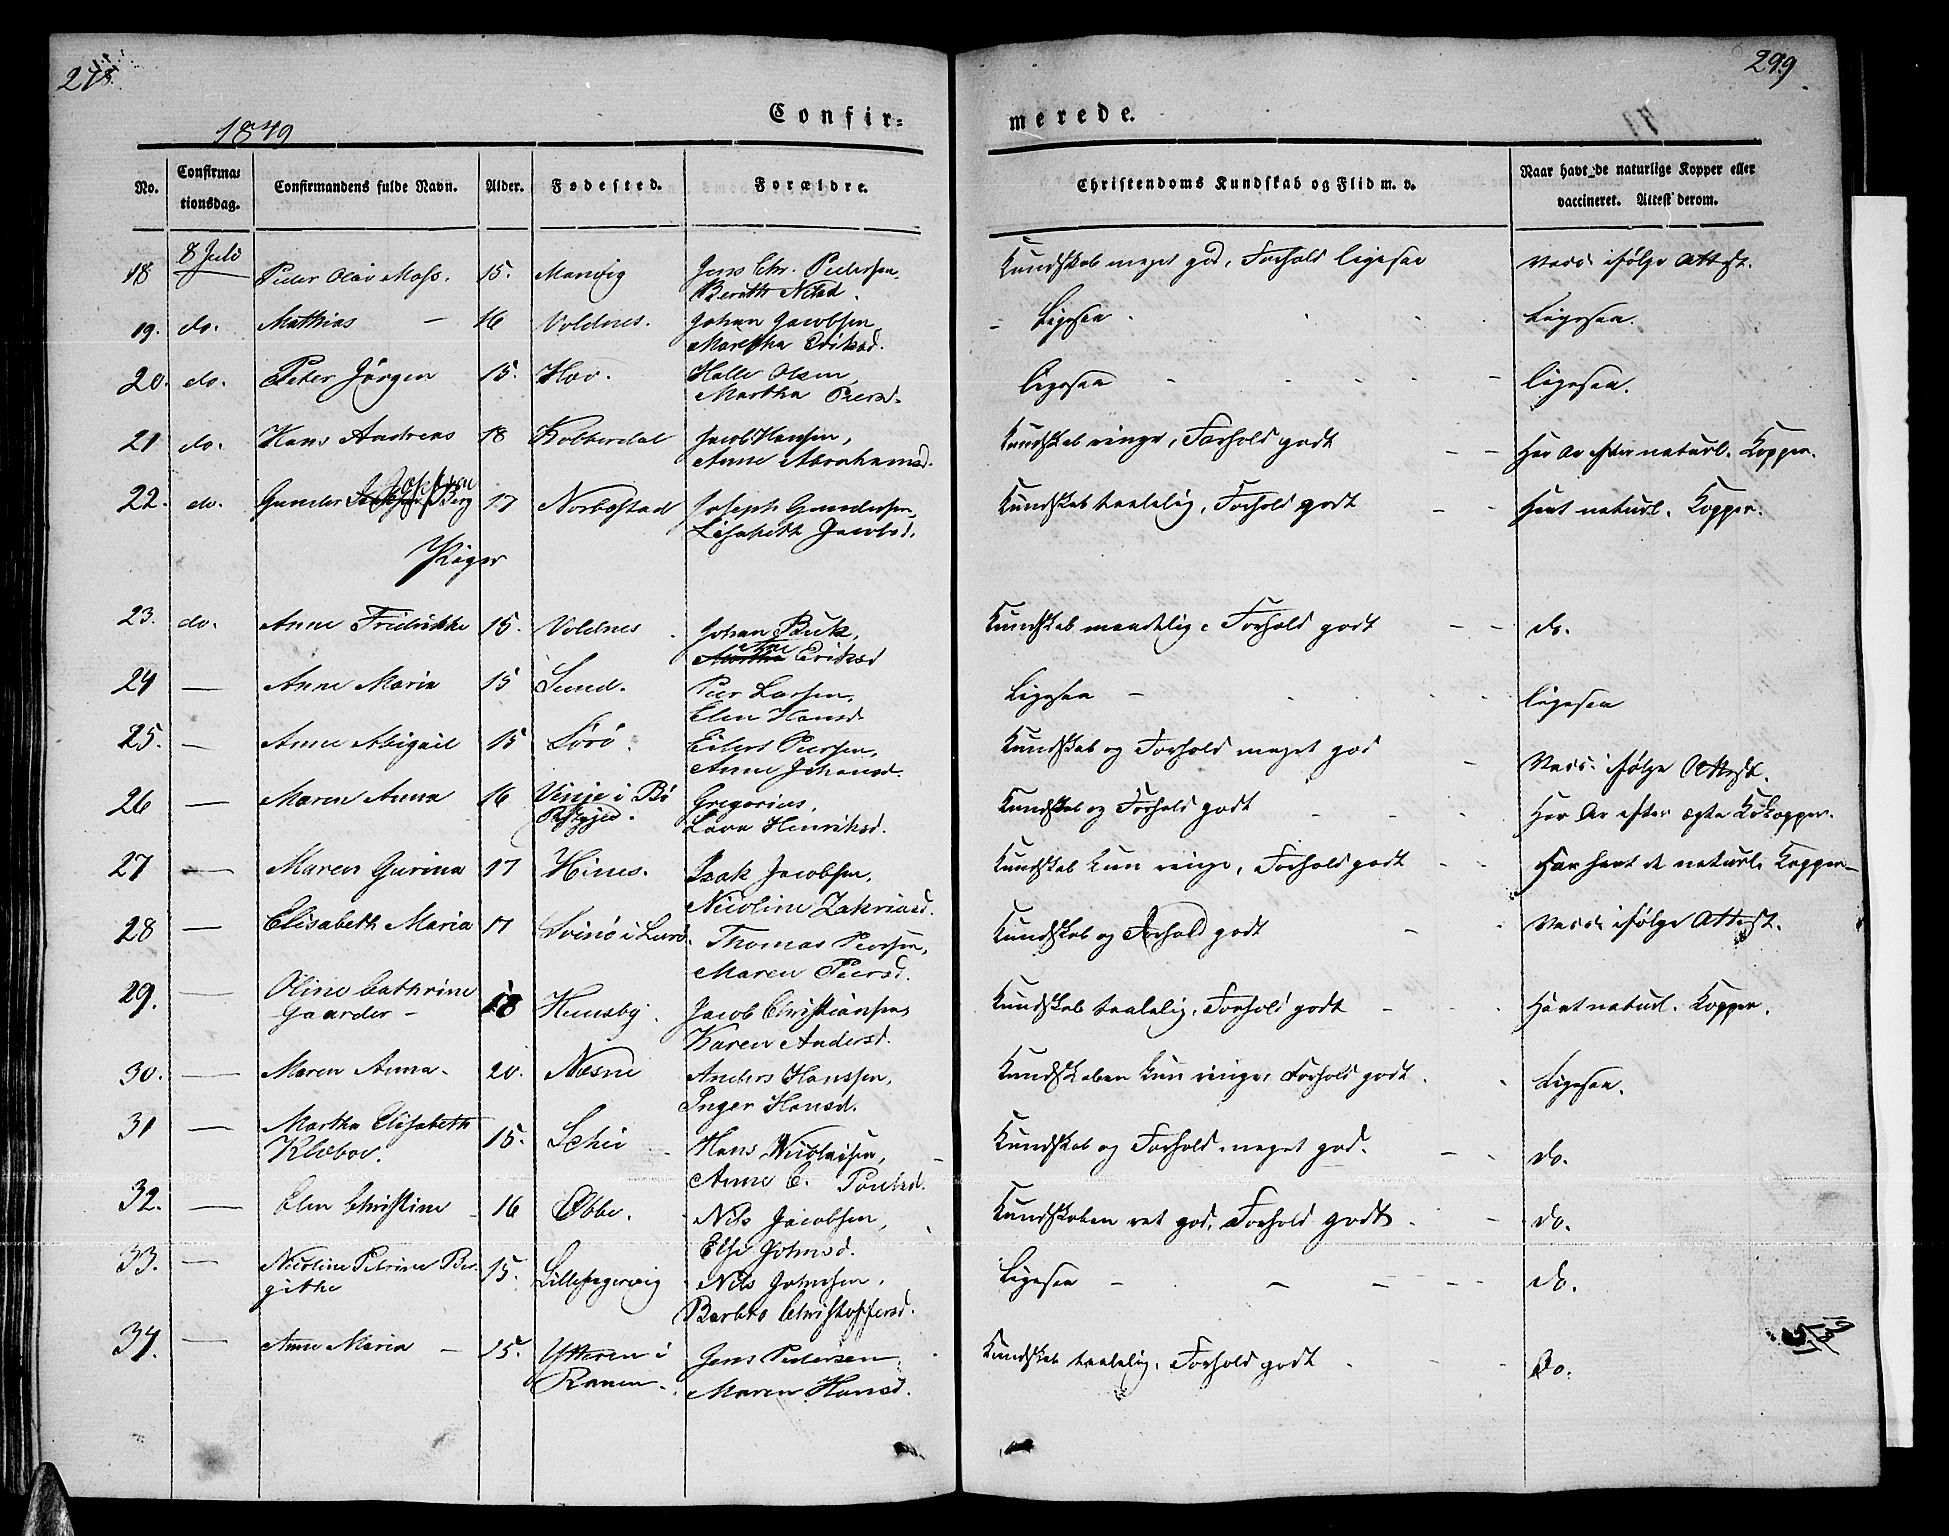 278.
299.
1849
Confir-
merede.
No.
Confirma-
tionsdag.
Confirmandens fulde Navn.
Alder.
Fødested.
Forældre.
Christendoms Kundskab og Flid m. v.
Naar havt de naturlige Kopper eller
vaccineret. Attest derom.
18 8 Juli Peder Olai Moss. 15. Manvig Jens Chr. Pedersen, Kundskab meget god, Forhold ligesaa Vacc. ifølge Attest.
Bereth Nilsd.
19. do. Mathias — 16 Voldnes. Johan Jacobsen, Ligesaa Ligesaa.
Martha Eriksd.
20. do. Peter Jörgen 15. Hov. Halle Olsen, ligesaa ligesaa.
Martha Peersd.
21 do. Hans Andreas 18 Kobberdal Jacob Hansen, Kundskab ringe, Forhold godt Har Ar efter naturl. Kopper.
Anne Abrahamsd.
Josephsen
22. do. Gunder Berg 17 Norbostad Joseph Gundersen, Kundskab taalelig, Forhold godt Havt naturl. Kopper.
Lisabeth Jacobsd.
Piger
23. do. Anne Fredrikke 15. Voldnes Johan Buk, Kundskab maadelig, Forhold godt do.
Ane
Martha Eriksd
24 — Anne Maria 15 Sund. Peer Larsen, Ligesaa ligesaa
Elen Hansd.
25. — Anne Abigail 15 Lörö. Eilert Peersen, Kundskab og Forhold meget god Vacc. ifølge Attest.
Anne Johansd.
26 — Maren Anna 16 Vinje i Bö Gregorius, Kundskab og Forhold godt Har Ar efter ægte Kokopper.
Pstgjed. Lava Henriksd.
27 — Maren Gurina 17 Hines. Isak Jacobsen, Kundskab kun ringe, Forhold godt Har havt de naturl. Kopper
Nicoline Zakriasd.
28 — Elisabeth Maria 17 Svinö i Lurö. Thomas Peersen, Kundskab og Forhold godt Vacc. ifølge Attest.
Maren Peersd.
29. — Oline Cathrine
Gaarder — 18 Huusby. Jacob Christiansen, Kundskab taalelig, Forhold godt Havt naturl. Kopper.
Karen Andersd.
30. — Maren Anna. 20. Næsne Anders Hanssen, Kundskaben kun ringe, Forhold godt. Ligesaa.
Inger Hansd.
31 — Martha Elisabeth
Klæboe. 15. Schei Hans Nicolaisen, Kundskab og Forhold meget god. do.
Anne C. Pouelsd.
32. — Elen Christine 16 Æbbe. Nils Jacobsen, Kundskaben ret god, Forhold godt. do.
Else Johnsd.
33. — Nicoline Petrine Ber-
githe 15. Lillefagervig Nils Johnsen, Ligesaa — do.
Barbro Christophersd.
34. — Anne Maria — 15. Ytteren i Jens Pedersen, Kundskab taalelig, Forhold godt Do.
Ranen. Maren Hansd.